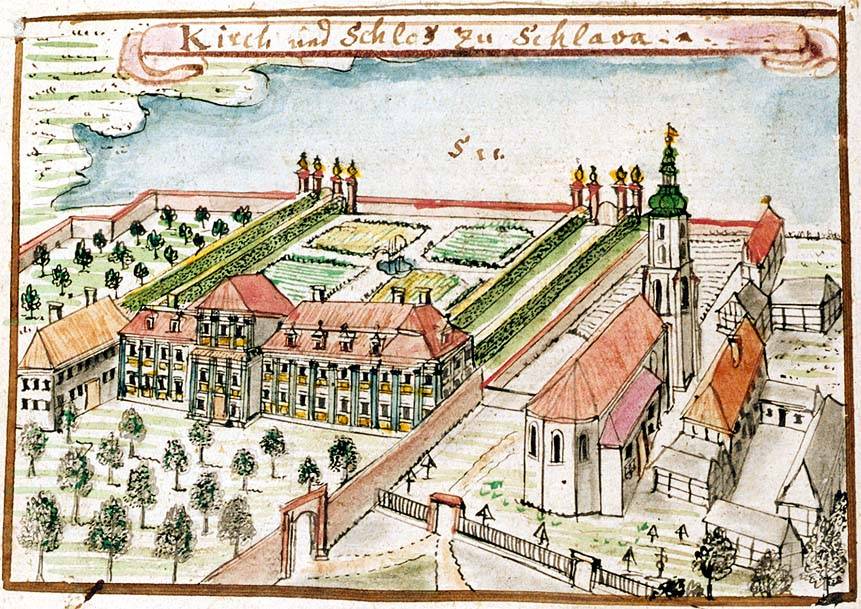 Kirch und Schlos zu Schlava
See